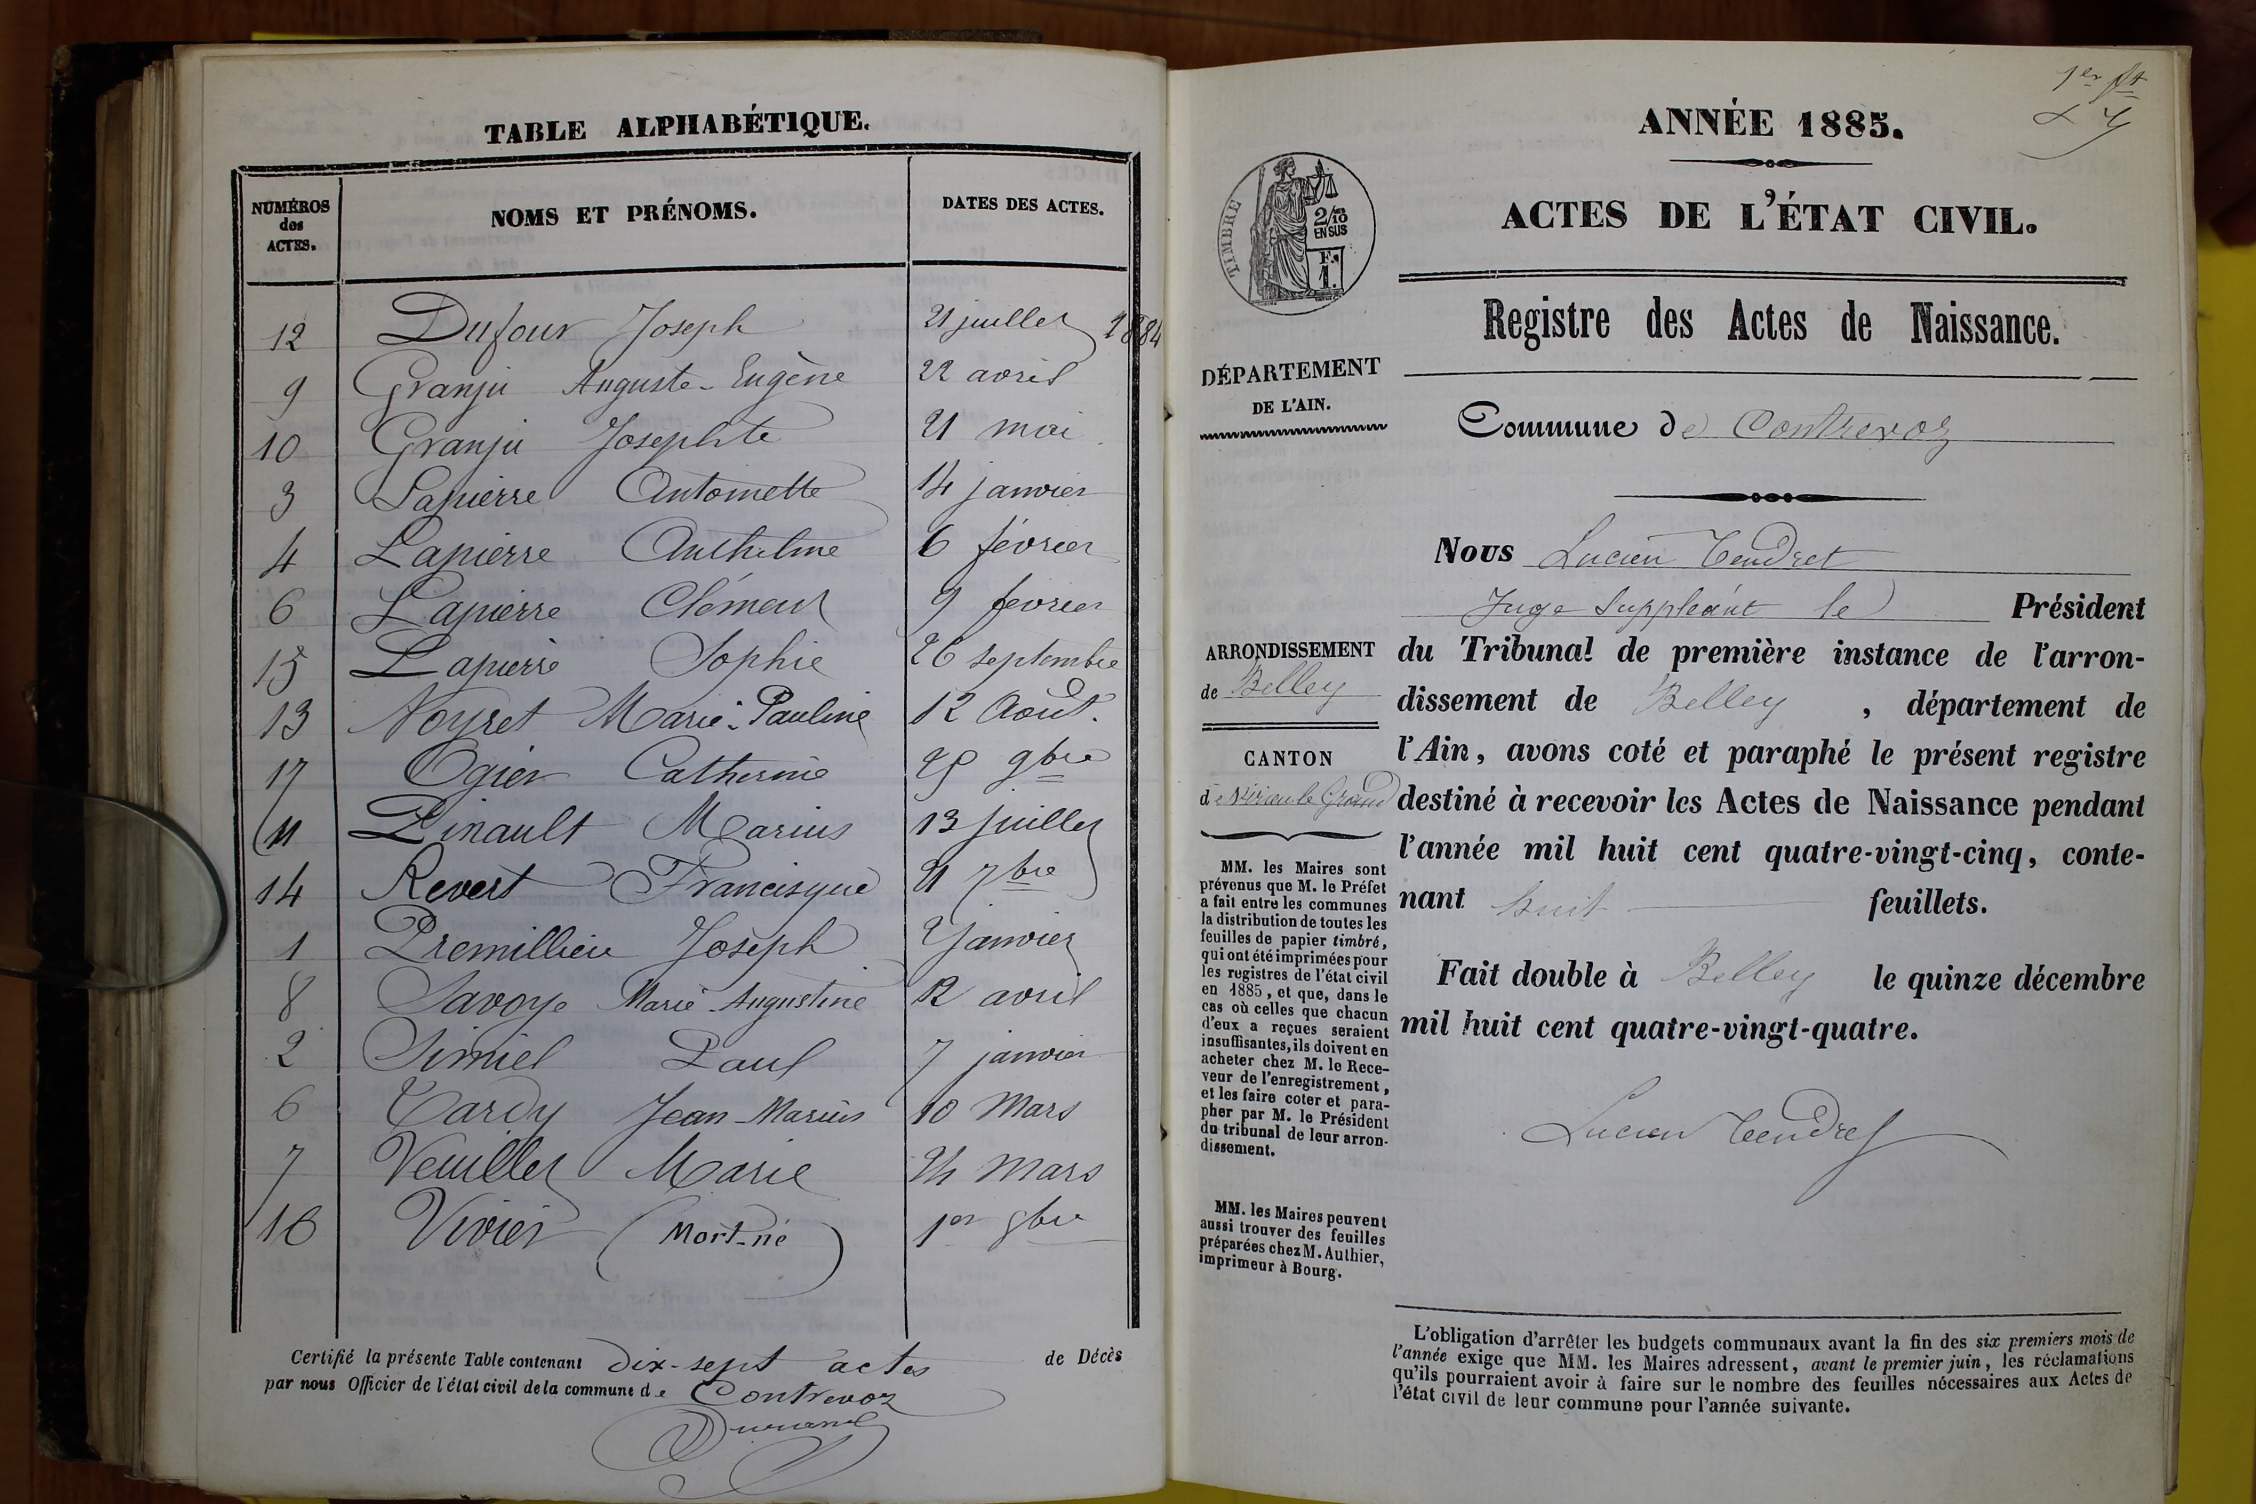 TABLE ALPHABÉTIQUE.
NUMÉROS des ACTES. NOMS ET PRÉNOMS. DATES DES ACTES.
12 Dufour Joseph 21 juillet 1884
9 Granju Auguste-Eugène 22 avril
10 Granju Josephte 21 mai
3 Lapierre Antoinette 14 janvier
4 Lapierre Anthelme 6 février
6 Lapierre Clément 9 fevrier
15 Lapierre Sophie 26 septembre
13 Noyret Marie-Pauline 12 Août.
17 Ogier Catherine 25 9bre
11 Pinault Marius 13 juillet
14 Revert Francisque 21 7bre
1 Premillieu Joseph 2 janvier
8 Savoye Marie-Augustine 12 avril
2 Simiel Paul 7 janvier
6 Tardy Jean-Marius 10 Mars
7 Veuillet Marie 24 Mars
16 Vivier (Mort-né) 1er 9bre
Certifié la présente Table contenant dix-sept actes de Décès
par nous Officier de l'état civil de la commune de Contrevoz
1er
ANNÉE 1885.
ACTES DE L'ÉTAT CIVIL.
TIMBRE
2/10
EN SUS
F.
1.
Registre des Actes de Naissance.
DÉPARTEMENT
DE L'AIN.
Commune de Contrevoz
Nous Lucien Tendret
Juge Suppléant le Président
ARRONDISSEMENT
de Belley
du Tribunal de première instance de l'arron-
dissement de Belley, département de
l'Ain, avons coté et paraphé le présent registre
destiné à recevoir les Actes de Naissance pendant
l'année mil huit cent quatre-vingt-cinq, conte-
nant huit feuillets.
Fait double à Belley le quinze décembre
mil huit cent quatre-vingt-quatre.
Lucien Tendret
CANTON
de Virieu le Grand
MM. les Maires sont
prévenus que M. le Préfet
a fait entre les communes
la distribution de toutes les
feuilles de papier timbré,
qui ont été imprimées pour
les registres de l'état civil
en 1885, et que, dans le
cas où celles que chacun
d'eux a reçues seraient
insuffisantes, ils doivent en
acheter chez M. le Rece-
veur de l'enregistrement,
et les faire coter et para-
pher par M. le Président
du tribunal de leur arron-
dissement.
MM. les Maires peuvent
aussi trouver des feuilles
préparées chez M. Authier,
imprimeur à Bourg.
L'obligation d'arrêter les budgets communaux avant la fin des six premiers mois de
l'année exige que MM. les Maires adressent, avant le premier juin, les réclamations
qu'ils pourraient avoir à faire sur le nombre des feuilles nécessaires aux Actes de
l'état civil de leur commune pour l'année suivante.